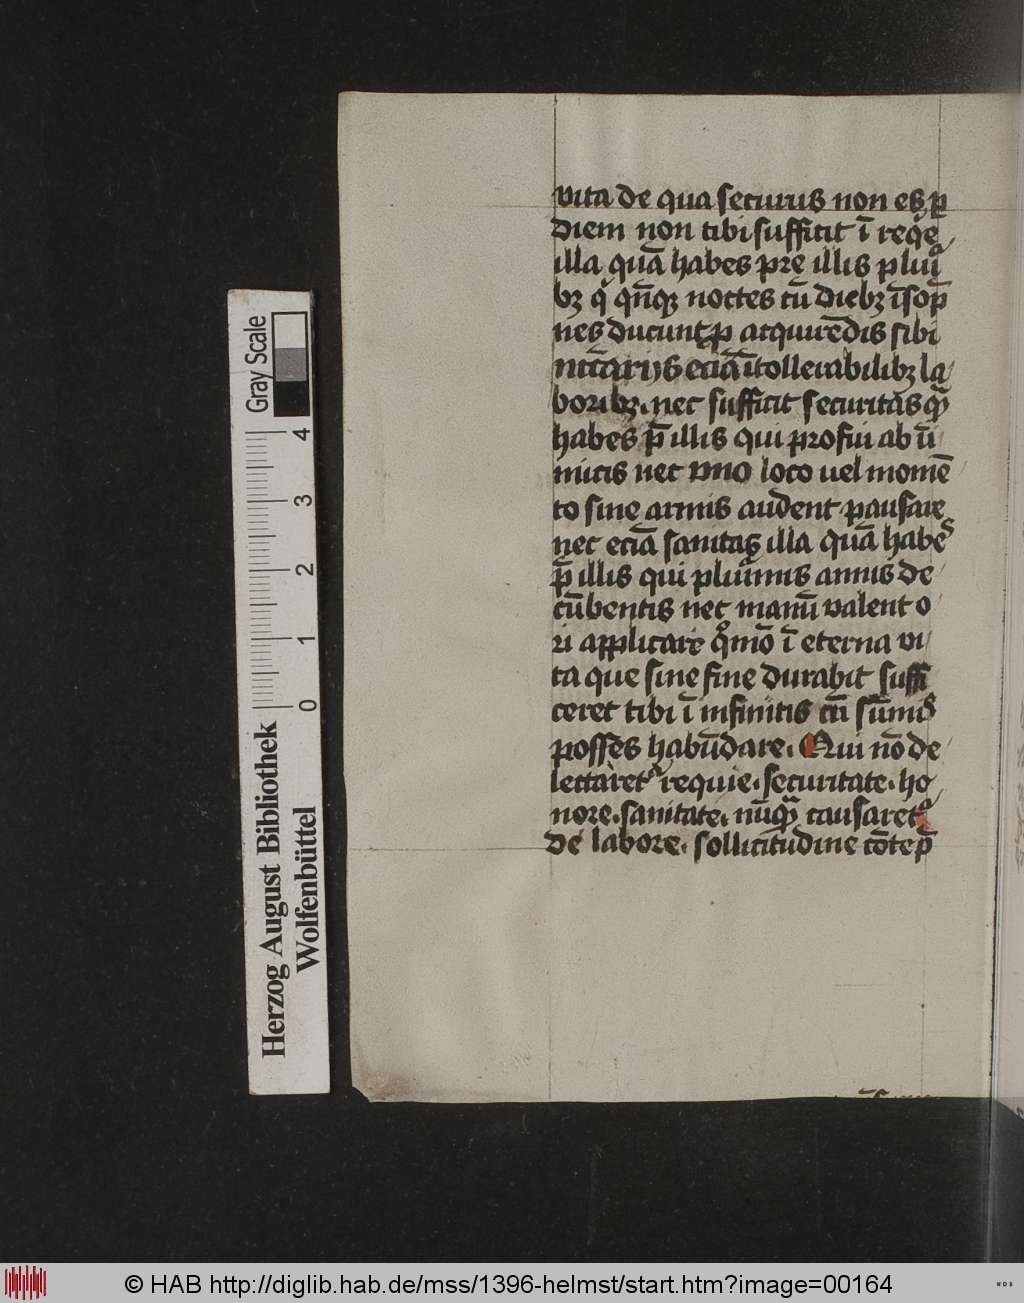 vita de qua securus non es ꝑ
diem non tibi sufficit ī reqͥe
illa quā habes pre illis pluriͣ
bꝫ qͥ qn̄qꝫ noctes cū diebꝫ īsop̄
nes ducunt ꝓ acquirēdis sibi
nccͣarijs eciā ītollerabilibꝫ la
boribꝫ. nec sufficit securitas qͣ̄
habes p̄ illis qui profui ab ī
micis nec vno loco uel momē
to sine armis audent pausare
nec eciā sanitas illa quā habeˢ
p̄ illis qui plurimis annis de
cūbentis nec manū valent o
ri applicare qͦmō ī eterna vi
ta que sine fine durabit suffi
ceret tibi ī infinitis cū sūmiˢ
posses habūdare. Qui nō de
lectaretᷣ requie. securitate. ho
nore. sanitate. nūqͣ̄ causaretᷣ
de labore. sollicitudine cōtep̄
Herzog August Bibliothek
Wolfenbüttel
Gray Scale
0 1 2 3 4
© HAB http://diglib.hab.de/mss/1396-helmst/start.htm?image=00164
WDB